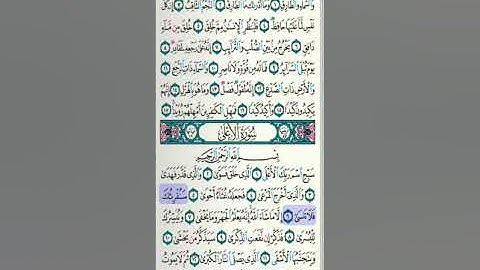 وَٱلسَّمَآءِ وَٱلطَّارِقِ ١ وَمَآ أَدۡرَىٰكَ مَا ٱلطَّارِقُ ٢ ٱلنَّجۡمُ ٱلثَّاقِبُ ٣ إِن كُلُّ
نَفۡسٖ لَّمَّا عَلَيۡهَا حَافِظٞ ٤ فَلۡيَنظُرِ ٱلۡإِنسَٰنُ مِمَّ خُلِقَ ٥ خُلِقَ مِن مَّآءٖ
دَافِقٖ ٦ يَخۡرُجُ مِنۢ بَيۡنِ ٱلصُّلۡبِ وَٱلتَّرَآئِبِ ٧ إِنَّهُۥ عَلَىٰ رَجۡعِهِۦ لَقَادِرٞ ٨
يَوۡمَ تُبۡلَى ٱلسَّرَآئِرُ ٩ فَمَا لَهُۥ مِن قُوَّةٖ وَلَا نَاصِرٖ ١٠ وَٱلسَّمَآءِ ذَاتِ ٱلرَّجۡعِ ١١
وَٱلۡأَرۡضِ ذَاتِ ٱلصَّدۡعِ ١٢ إِنَّهُۥ لَقَوۡلٞ فَصۡلٞ ١٣ وَمَا هُوَ بِٱلۡهَزۡلِ ١٤ إِنَّهُمۡ
يَكِيدُونَ كَيۡدٗا ١٥ وَأَكِيدُ كَيۡدٗا ١٦ فَمَهِّلِ ٱلۡكَٰفِرِينَ أَمۡهِلۡهُمۡ رُوَيۡدَۢا ١٧
سُورَةُ ٱلۡأَعۡلَىٰ
بِسۡمِ ٱللَّهِ ٱلرَّحۡمَٰنِ ٱلرَّحِيمِ
سَبِّحِ ٱسۡمَ رَبِّكَ ٱلۡأَعۡلَى ١ ٱلَّذِي خَلَقَ فَسَوَّىٰ ٢ وَٱلَّذِي قَدَّرَ فَهَدَىٰ
٣ وَٱلَّذِيٓ أَخۡرَجَ ٱلۡمَرۡعَىٰ ٤ فَجَعَلَهُۥ غُثَآءً أَحۡوَىٰ ٥ سَنُقۡرِئُكَ
فَلَا تَنسَىٰٓ ٦ إِلَّا مَا شَآءَ ٱللَّهُۚ إِنَّهُۥ يَعۡلَمُ ٱلۡجَهۡرَ وَمَا يَخۡفَىٰ ٧ وَنُيَسِّرُكَ
لِلۡيُسۡرَىٰ ٨ فَذَكِّرۡ إِن نَّفَعَتِ ٱلذِّكۡرَىٰ ٩ سَيَذَّكَّرُ مَن يَخۡشَىٰ ١٠
وَيَتَجَنَّبُهَا ٱلۡأَشۡقَى ١١ ٱلَّذِي يَصۡلَى ٱلنَّارَ ٱلۡكُبۡرَىٰ ١٢ ثُمَّ لَا يَمُوتُ